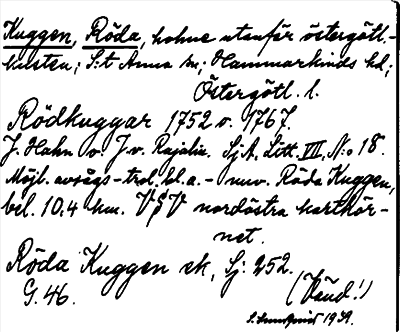 Kuggen, Röda, holme utanför östergötl.-
kusten; S:t Anna sn; Hammarkinds hd;
Östergötl. l.
Rödkuggar 1752 o. 1767.
J. Hahn o. J. v. Rajalin. Sj.A. Litt. VIII, No 18.
Möjl. avsågs – trol. bl. a. – nuv. Röda Kuggen,
bel. 10.4 km. VSV nordöstra karthör-
net.
Röda Kuggen ek, Sj: 252.
G. 46.
(Vänd!)
1939.